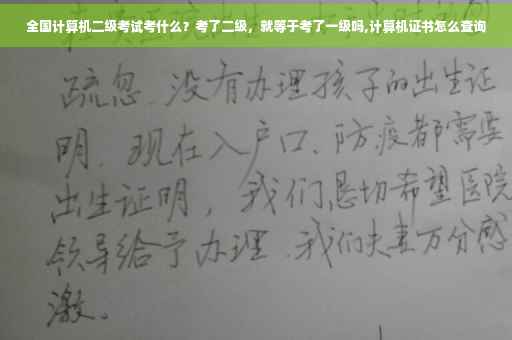 全国计算机二级考试考什么？考了二级，就等于考了一级吗,计算机证书怎么查询
疏忽.没有办理孩子的出生证
明.现在入户口、防疫都需要
出生证明，我们恳切希望医院
领导给予办理.我们夫妻万分感
激。